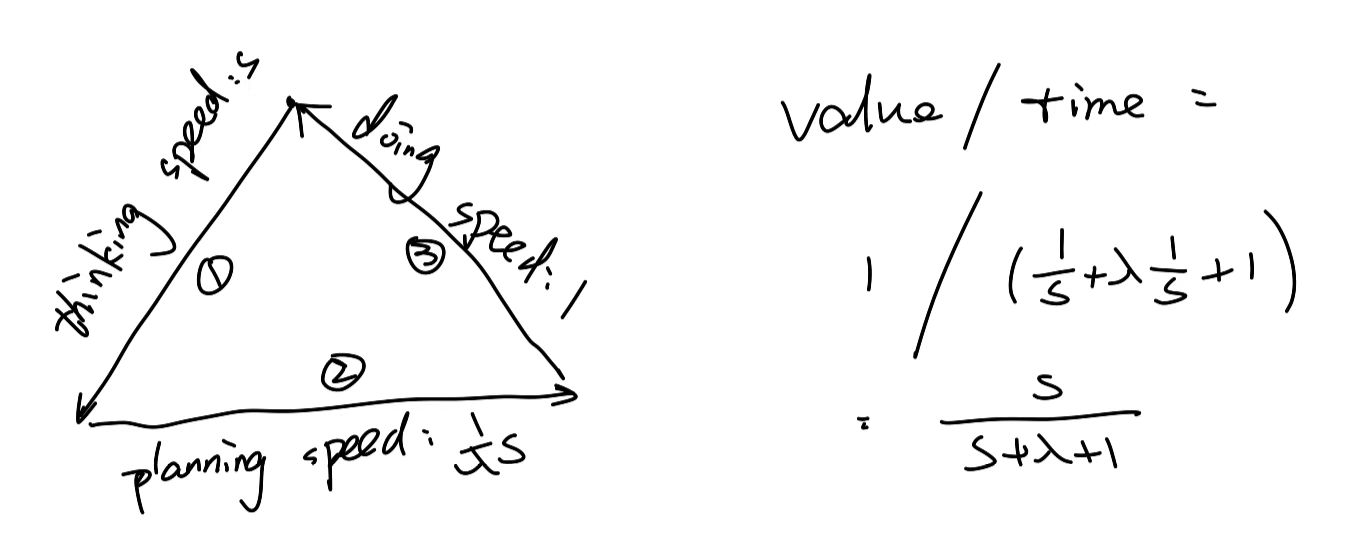 thinking speed: s
①
doing speed: 1
③
②
planning speed: 1/λ s
value / time =
1 / (1/s + λ 1/s + 1)
= s / (s+λ+1)